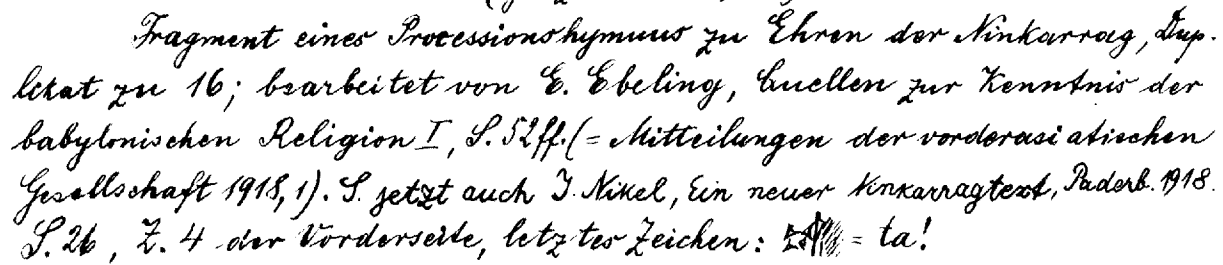 Fragment eines Processionshymnus zu Ehren der Ninkarrag, Dup-
likat zu 16; bearbeitet von E. Ebeling, Quellen zur Kenntnis der
babylonischen Religion I, S. 52ff. (= Mitteilungen der vorderasiatischen
Gesellschaft 1918, 1). S. jetzt auch J. Nikel, Ein neuer Ninkarragtext, Paderb. 1918.
S. 26, Z. 4 der Vorderseite, letztes Zeichen: = ta!